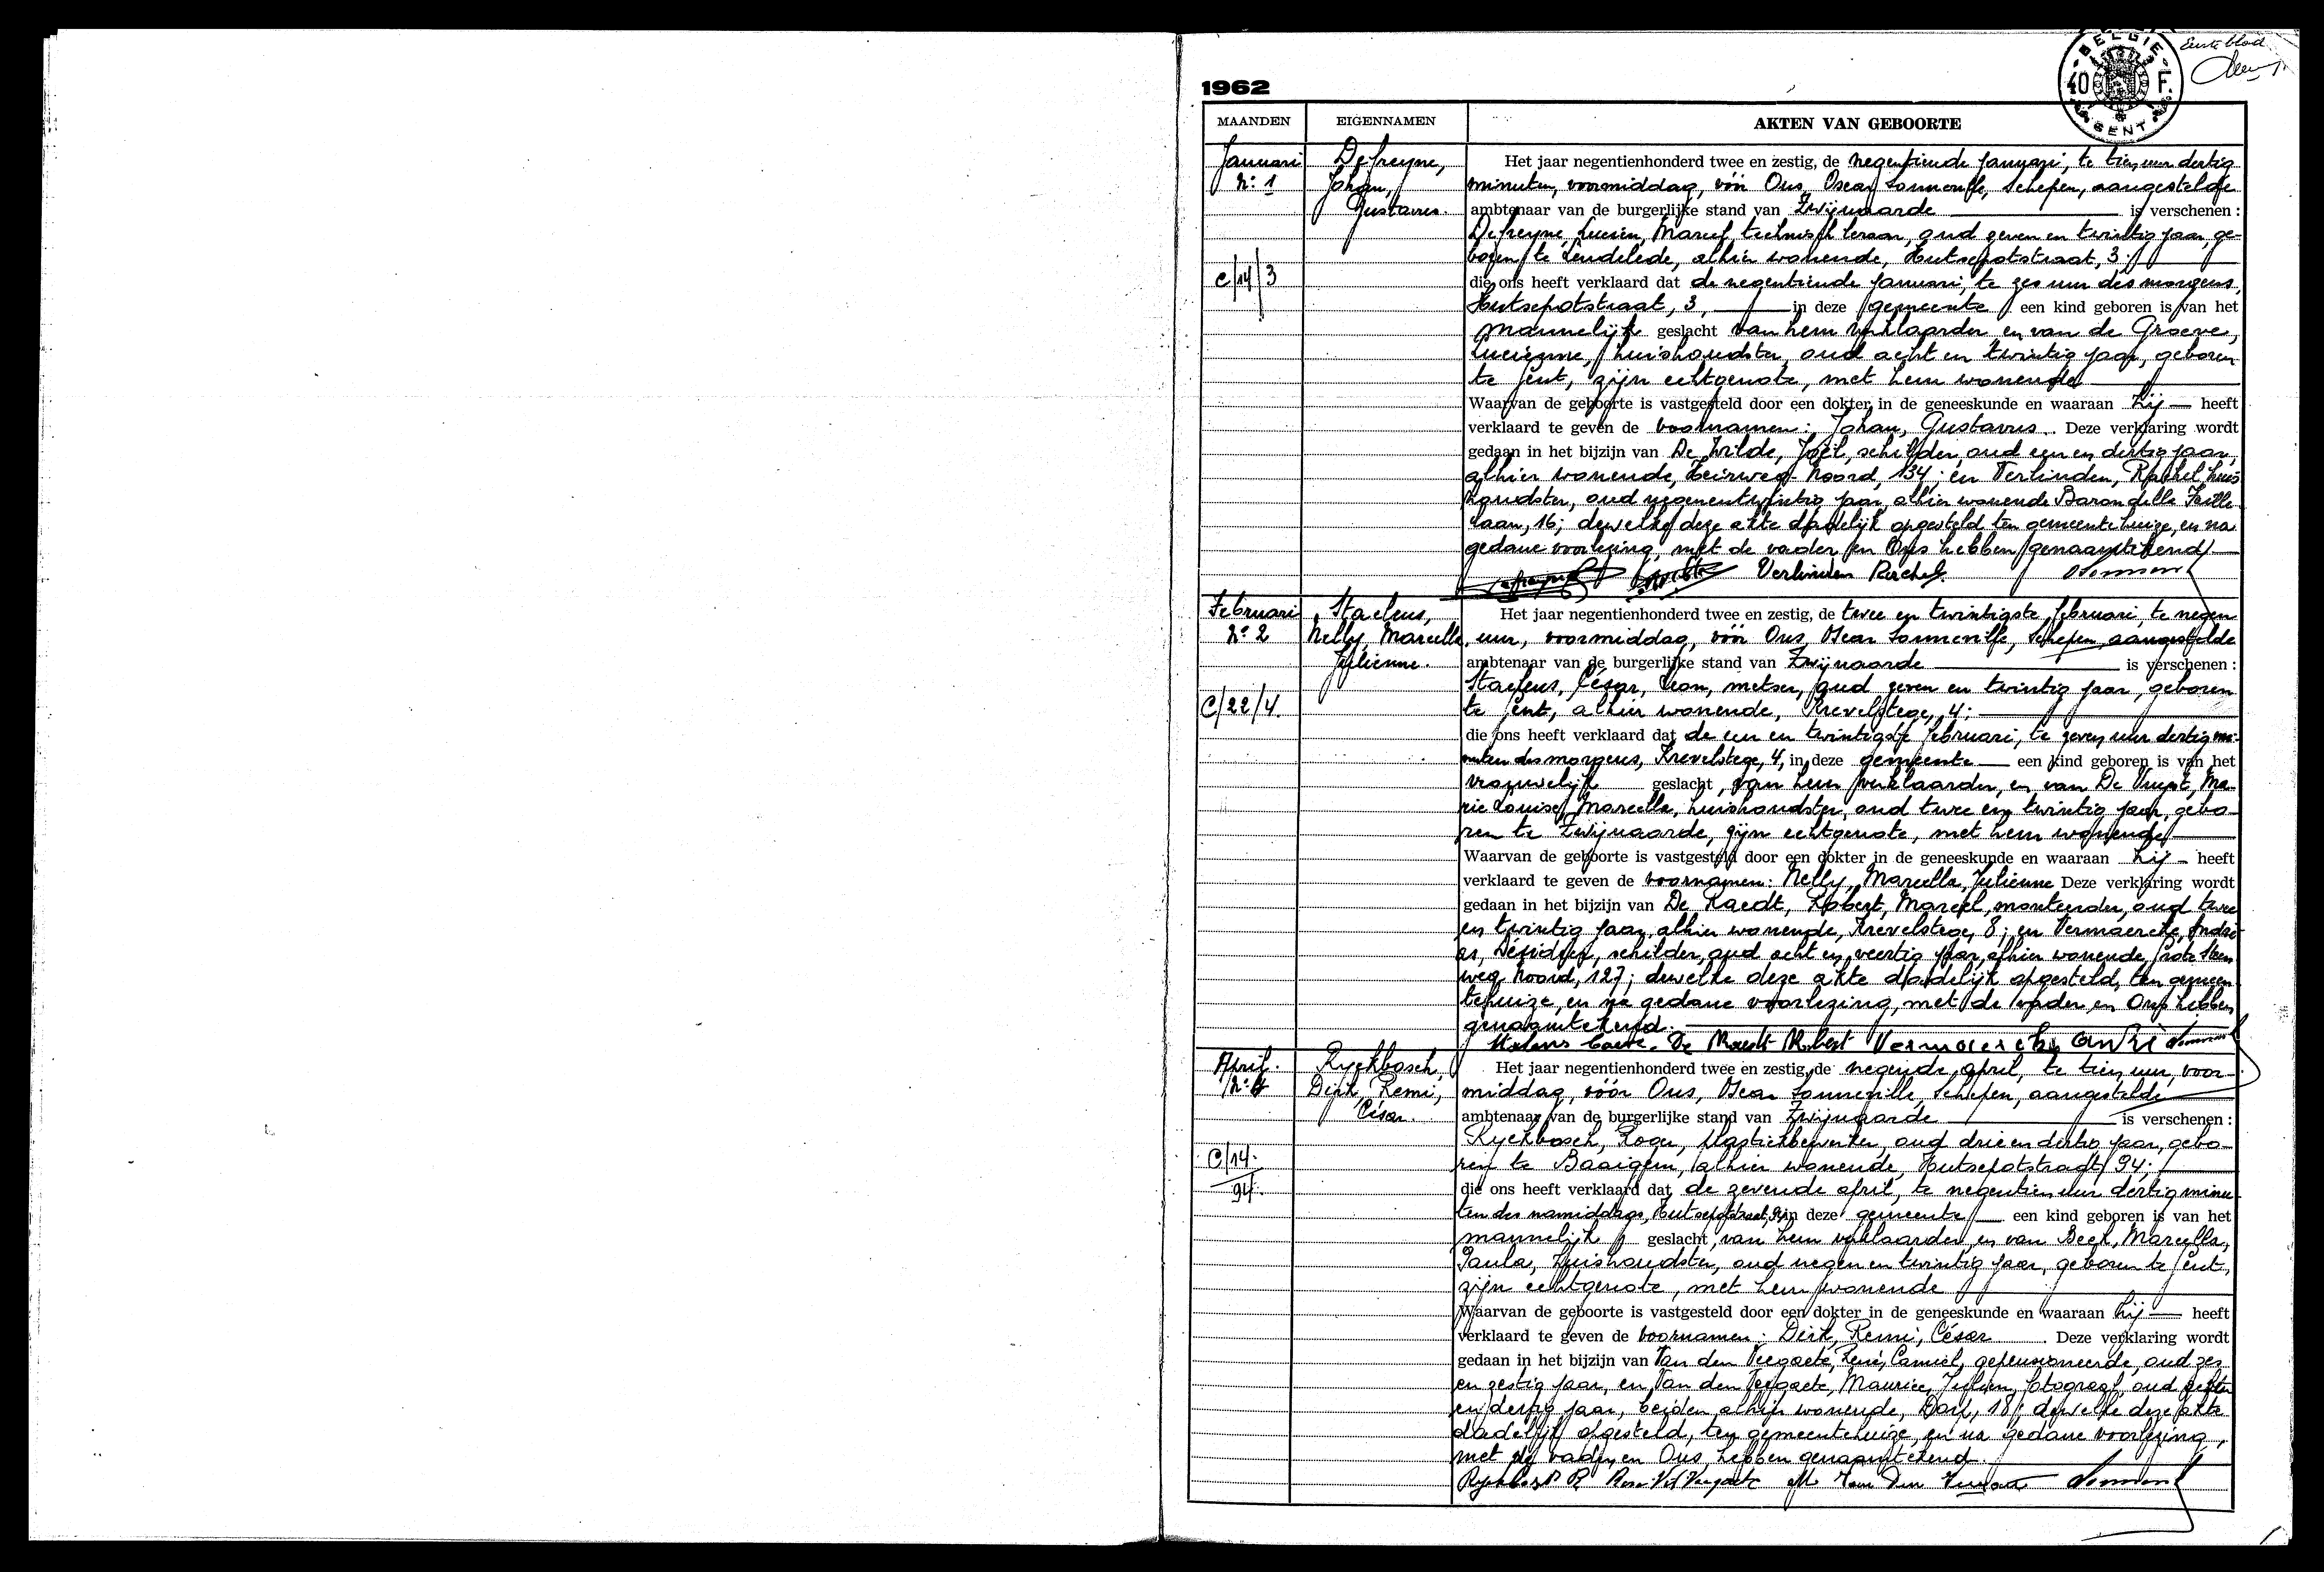 BELGIE
40 F.
GENT
Eerste blad
1962
MAANDEN EIGENNAMEN AKTEN VAN GEBOORTE
Januari
N: 1
C/14/3
Defreyne,
Johan,
Gustavus.
Het jaar negentienhonderd twee en zestig, de negentiende januari, te tien uur dertig
minuten, voormiddag, vóór Ons, Oscar Sonneville, Schepen, aangestelde
ambtenaar van de burgerlijke stand van Zwijnaarde is verschenen :
Defreyne, Lucien, Marcel, technisch leraar, oud zeven en twintig jaar, ge-
boren te Lendelede, alhier wonende, Hutsepotstraat, 3;
die ons heeft verklaard dat de negentiende januari, te zes uur des morgens,
Hutsepotstraat, 3, in deze gemeente een kind geboren is van het
mannelijk geslacht van hem verklaarder en van de Groeve,
Lucienne, huishoudster, oud acht en twintig jaar, geboren
te Gent, zijn echtgenote, met hem wonende
Waarvan de geboorte is vastgesteld door een dokter in de geneeskunde en waaraan hij heeft
verklaard te geven de voornamen: Johan, Gustavus. Deze verklaring wordt
gedaan in het bijzijn van De Wilde, Joël, schilder, oud een en dertig jaar,
alhier wonende, Heirweg-Noord, 134; en Verlinden, Rachel, huis-
houdster, oud negenentwintig jaar, alhier wonende Baron della Faille-
laan, 16; dewelke deze akte dadelijk opgesteld ten gemeentehuize, en na
gedane voorlezing, met de vader en Ons hebben genaamtekend
Verlinden Rachel.
Februari
N: 2
C/22/4.
Staelens,
Nelly, Marcella,
Julienne.
Het jaar negentienhonderd twee en zestig, de twee en twintigste februari, te negen
uur, voormiddag, vóór Ons, Oscar Sonneville, Schepen, aangestelde
ambtenaar van de burgerlijke stand van Zwijnaarde is verschenen :
Staelens, César, Leon, metser, oud zeven en twintig jaar, geboren
te Gent, alhier wonende, Krevelstege, 4;
die ons heeft verklaard dat de een en twintigste februari, te zeven uur dertig mi-
nuten des morgens, Krevelstege, 4, in deze gemeente een kind geboren is van het
vrouwelijk geslacht, van hem verklaarder, en van De Vuyst, Ma-
rie Louise, Marcella, huishoudster, oud twee en twintig jaar, gebo-
ren te Zwijnaarde, zijn echtgenote, met hem wonende
Waarvan de geboorte is vastgesteld door een dokter in de geneeskunde en waaraan hij heeft
verklaard te geven de voornamen: Nelly, Marcella, Julienne Deze verklaring wordt
gedaan in het bijzijn van De Raedt, Robert, Marcel, monteerder, oud twee
en twintig jaar, alhier wonende, Krevelstege, 8; en Vermaercke, André-
as, schilder, oud acht en veertig jaar, alhier wonende, Grote Steen-
weg Noord, 127; dewelke deze akte dadelijk opgesteld, ten gemeen-
tehuize, en na gedane voorlezing, met de vader en Ons hebben
genaamtekend.
De Raedt Robert Vermaercke André
April.
C/14.
94.
Ryckbosch,
Dirk, Remi,
César.
Het jaar negentienhonderd twee en zestig, de negende april, te tien uur, voor-
middag, vóór Ons, Oscar Sonneville, Schepen, aangestelde
ambtenaar van de burgerlijke stand van Zwijnaarde is verschenen :
Ryckbosch, Roger, plastiekbewerker, oud drie en dertig jaar, gebo-
ren te Baaigem, alhier wonende, Hutsepotstraat, 94;
die ons heeft verklaard dat de zevende april, te negentien uur dertig minu-
ten des namiddags, Hutsepotstraat, 94, in deze gemeente een kind geboren is van het
mannelijk geslacht, van hem verklaarder, en van Beek, Marcella,
Paula, huishoudster, oud negen en twintig jaar, geboren te Gent,
zijn echtgenote, met hem wonende
Waarvan de geboorte is vastgesteld door een dokter in de geneeskunde en waaraan hij heeft
verklaard te geven de voornamen: Dirk, Remi, César. Deze verklaring wordt
gedaan in het bijzijn van Van den Veegaete, René, Camiel, gepensioneerde, oud zes
en zestig jaar, en Van den Veegaete, Maurice, Julien, fotograaf, oud
en dertig jaar, beiden alhier wonende, Dorp, 18; dewelke deze akte
dadelijk opgesteld, ten gemeentehuize, en na gedane voorlezing,
met de vader en Ons, hebben genaamtekend.
Ryckbosch R